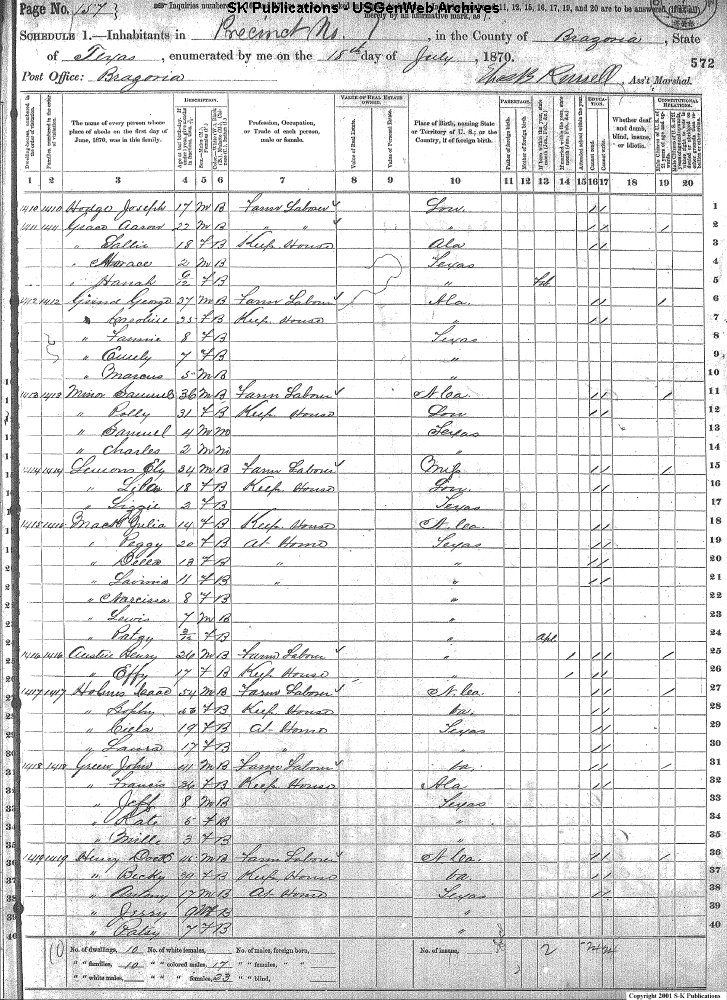 SK Publications - USGenWeb Archives
Page No. 157
Inquiries numbered 11, 12, 15, 16, 17, 19, and 20 are to be answered (if at all)
merely by an affirmative mark, as /.
SCHEDULE 1.—Inhabitants in Precinct No. , in the County of Brazoria, State
of Texas, enumerated by me on the 18th day of July, 1870.
572
Post Office: Brazoria Russell, Ass't Marshal.
Dwelling-houses, numbered in the order of visitation.
Families, numbered in the order of visitation.
The name of every person whose place of abode on the first day of June, 1870, was in this family.
DESCRIPTION.
Profession, Occupation, or Trade of each person, male or female.
VALUE OF REAL ESTATE OWNED.
Value of Real Estate.
Value of Personal Estate.
Place of Birth, naming State or Territory of U. S.; or the Country, if of foreign birth.
PARENTAGE.
Father of foreign birth.
Mother of foreign birth.
EDUCATION.
Attended school within the year.
Cannot read.
Cannot write.
Whether deaf and dumb, blind, insane, or idiotic.
CONSTITUTIONAL RELATIONS.
1 2 3 4 5 6 7 8 9 10 11 12 13 14 15 16 17 18 19 20
1410 1410 Hodge Joseph 17 M B Farm Labour Lou. / / 1
1411 1411 Grace Aaron 22 M B " " " / / / 2
" Sallie 18 F B Keep House Ala / / 3
" Horace 2 M B Texas 4
" Hanah 6/12 F B " Feb. 5
1412 1412 George 37 M B Farm Labour Ala. / / / 6
" 35 F B Keep House " / / 7
" Fannie 8 F B Texas 8
" Emely 7 F B " 9
" Marcus 5 M B " 10
1413 1413 Minor Samuel 36 M B Farm Labour N. Ca. / / / 11
" Polly 31 F B Keep House Lou / / 12
" Samuel 4 M M Texas 13
" Charles 2 M M " 14
1414 1414 Lemons Ely 34 M B Farm Labour Miss / / / 15
" Lila 18 F B Keep House Lou. / / 16
" Lizzie 2 F B Texas 17
1415 1415 Mack Julia 14 F B Keep House N. Ca. / / 18
" Peggy 20 F B At Home Texas / / 19
" Della 13 F B " " / / 20
" Lavinia 11 F B " " / / 21
" Narcissa 8 F B " 22
" Lewis 7 M B " 23
" Patsy F B " Apl 24
1416 1416 Austin Henry 26 M B Farm Labour " / / / / 25
" Effy 17 F B Keep House " / / / 26
1417 1417 Holmes Isaac 54 M B Farm Labour N. Ca. / / / 27
" Sophy 53 F B Keep House Va. / / 28
" Ciella 19 F B At Home Texas / / 29
" Laura 17 F B " " / / 30
1418 1418 Green John 41 M B Farm Labour Va. / / / 31
" Francis 36 F B Keep House Ala / / 32
" Jeff 8 M B Texas 33
" Kate 5 F B " 34
" Mille 3 F B " 35
1419 1419 Henry 45 M B Farm Labour N. Ca. / / / 36
" Becky 39 F B Keep House Va. / / 37
" Antony 17 M B At Home Texas / / 38
" Jerry 9 M B " 39
" Patsy 7 F B " 40
No. of dwellings, 10 No. of white females, No. of males, foreign born, No. of insane, 2
" " families, 10 " " colored males, 17 " " females, " "
" " white males, " " " females, 23 " " blind,
Copyright 2001 S-K Publications